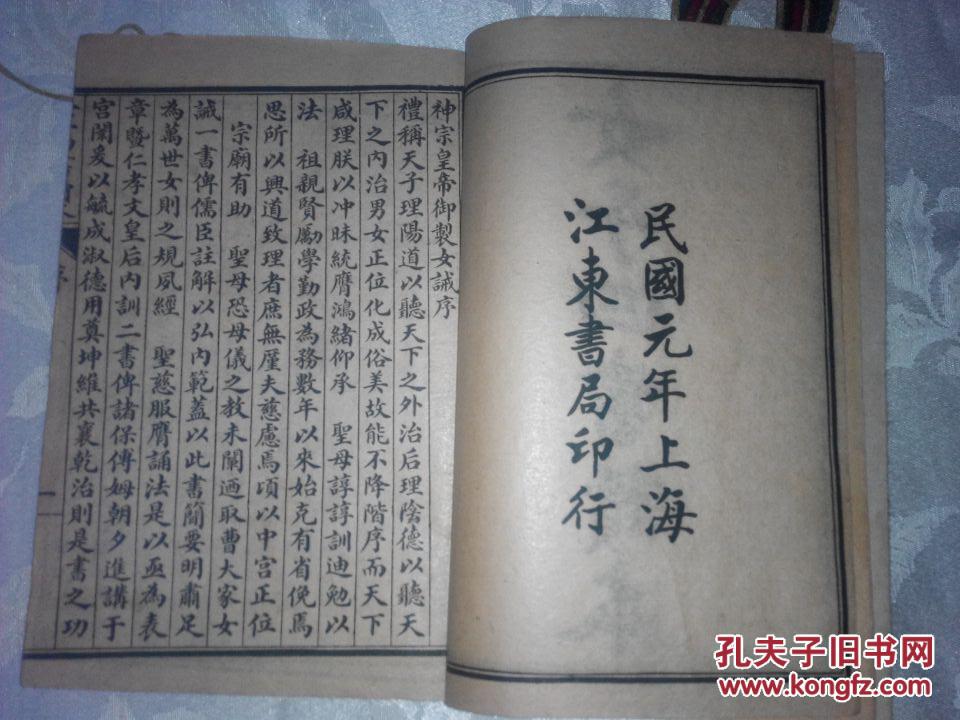 民國元年上海
江東書局印行
神宗皇帝御製女誡序
禮稱天子理陽道以聽天下之外治后理陰德以聽天
下之內治男女正位化成俗美故能不降階序而天下
咸理朕以冲昧統膺鴻緒仰承　聖母諄諄訓迪勉以
法　祖親賢勵學勤政為務數年以來始克有省俛焉
思所以興道致理者庶無厪夫慈慮焉頃以中宮正位
宗廟有助　聖母恐母儀之教未闡迺取曹大家女
誡一書俾儒臣註解以弘內範蓋以此書簡要明肅足
為萬世女則之規夙經　聖慈服膺誦法是以亟為表
章暨仁孝文皇后內訓二書俾諸保傅姆朝夕進講于
宮閫爰以毓成淑德用奠坤維共襄乾治則是書之功
序
一
孔夫子旧书网
www.kongfz.com